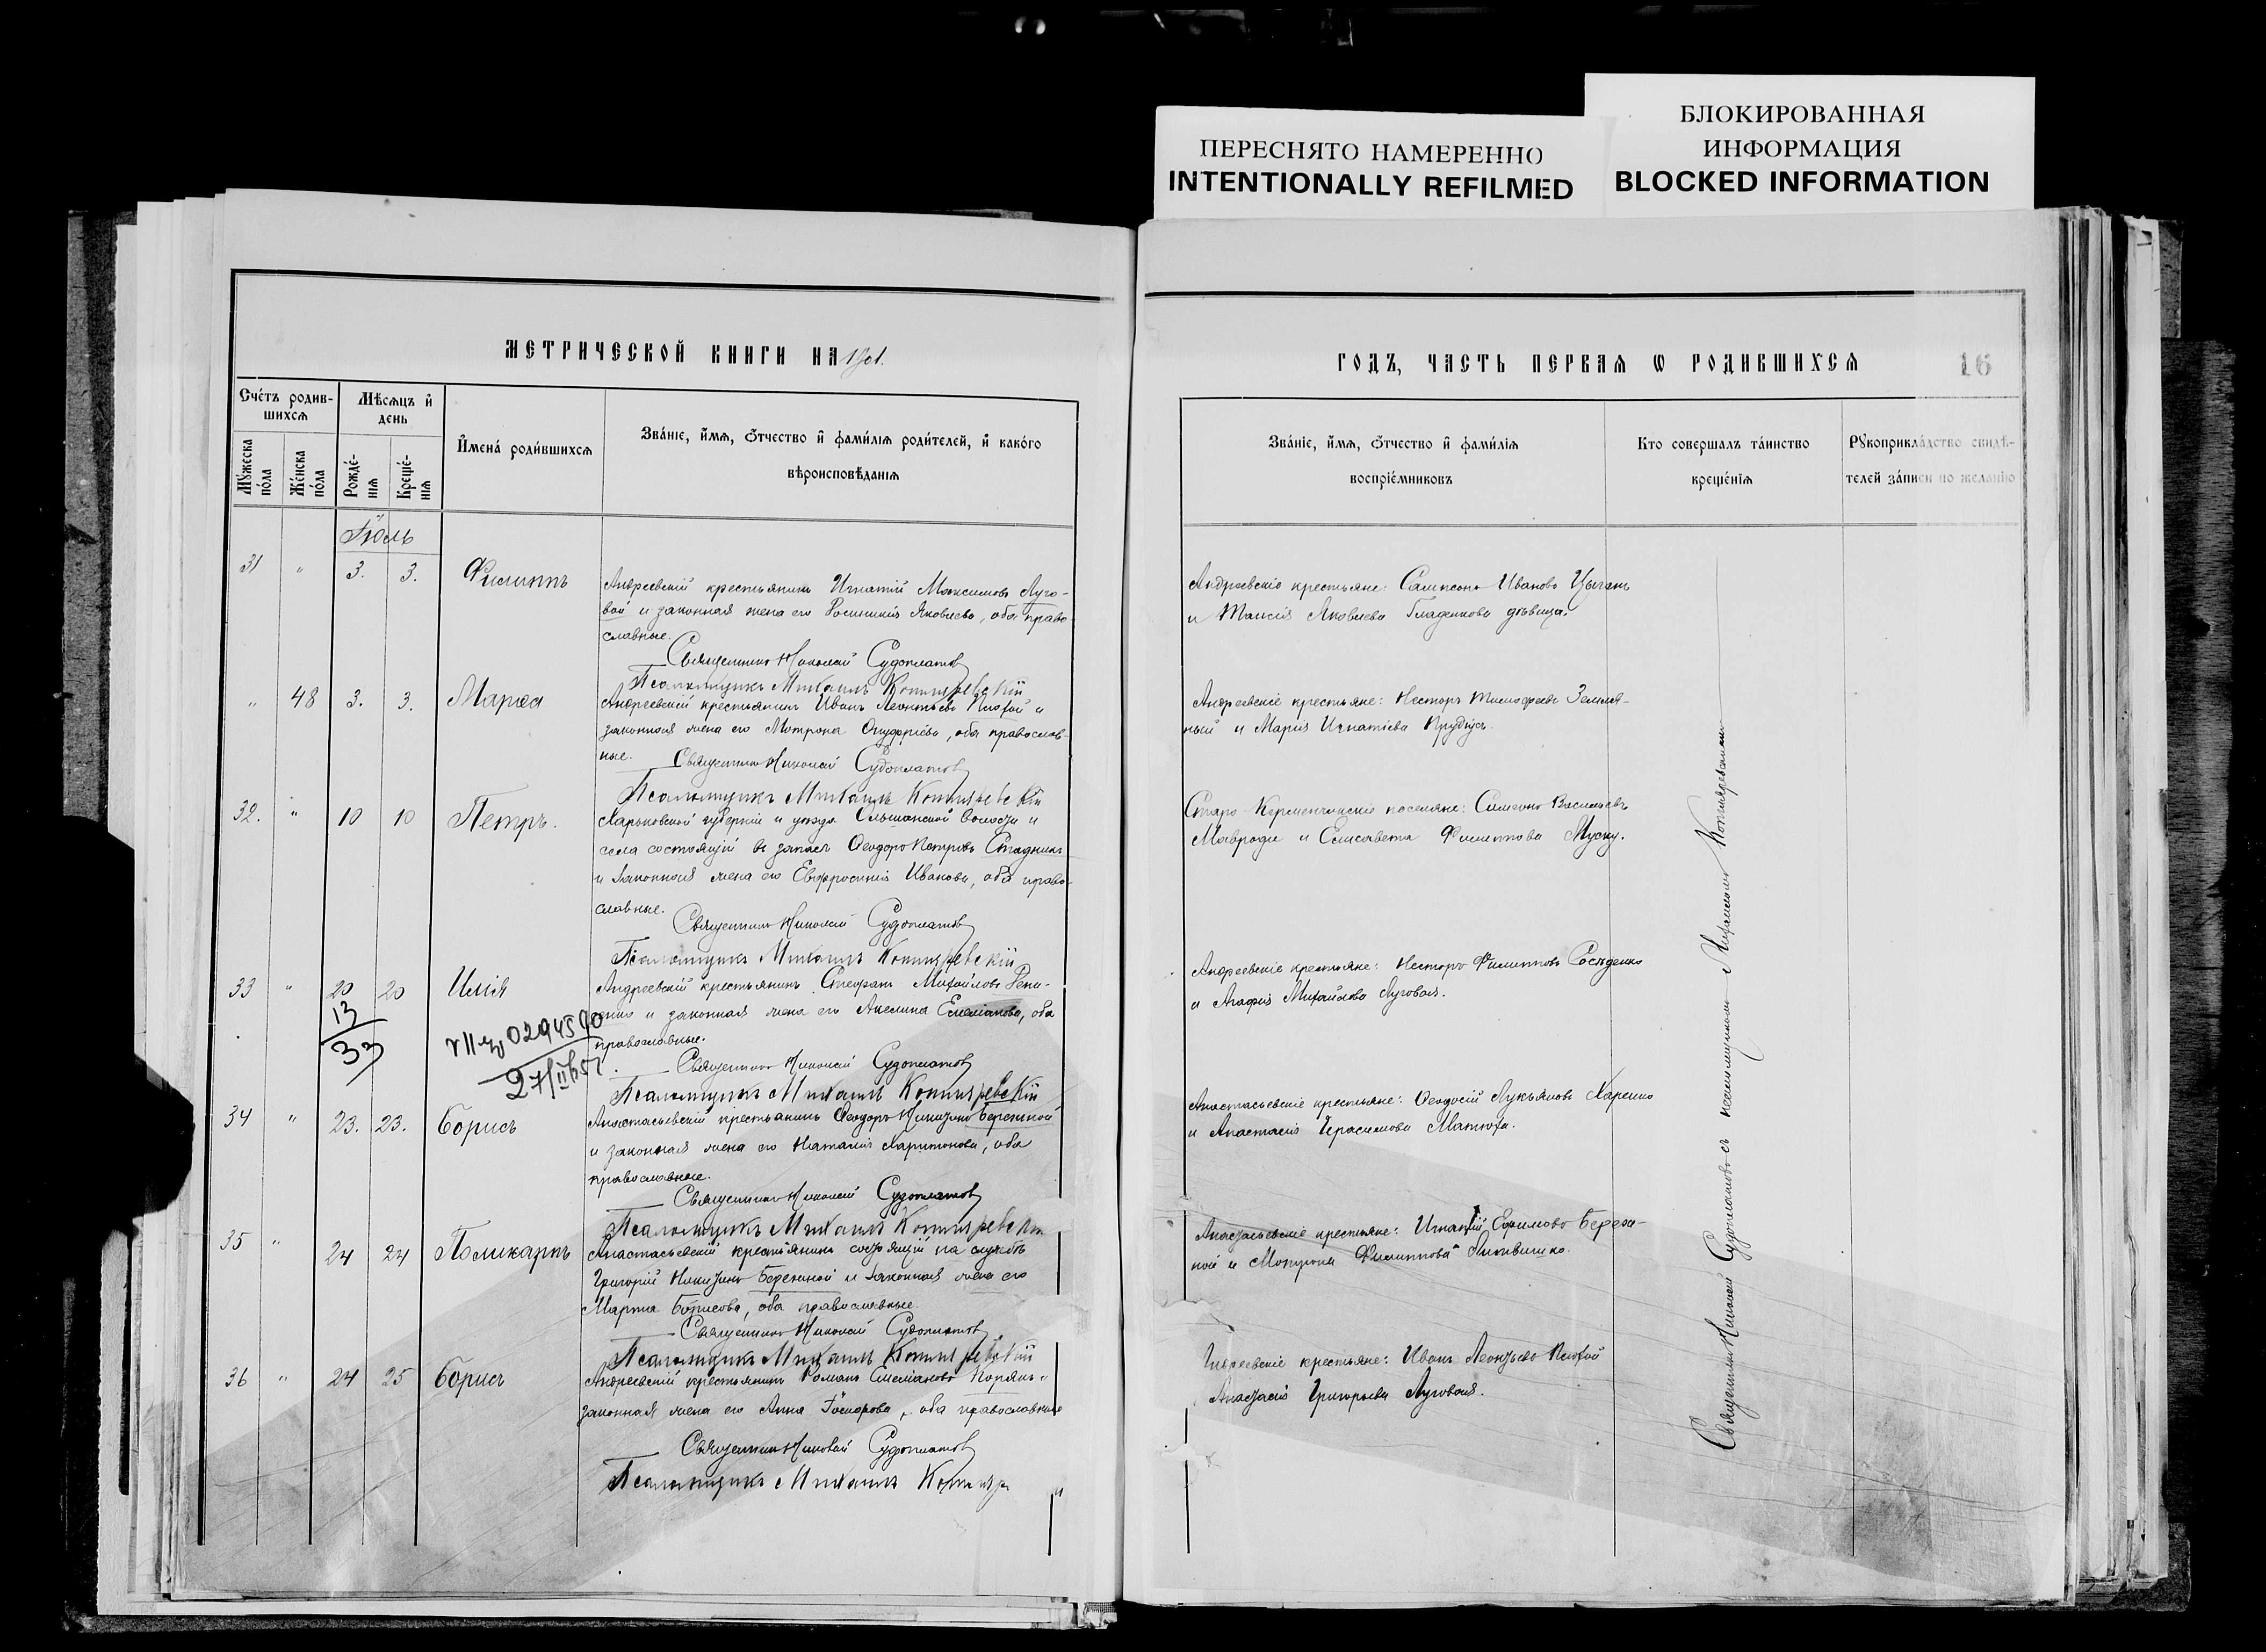 БЛОКИРОВАННАЯ
ИНФОРМАЦИЯ
BLOCKED INFORMATION
ПЕРЕСНЯТО НАМЕРЕННО
INTENTIONALLY REFILMED
МЕТРИЧЕСКОЙ КНИГИ НА 1901.
Счетъ родив-
шихся
Мѣсяцъ и
день
Мужеска
пола
Женска
пола
Рожде-
нія
Креще-
нія
Имена родившихся
Званіе, имя, отчество и фамилія родителей, и какого
вѣроисповѣданія
Іюль
31 " 3. 3. Филиппъ
Андреевскій крестьянинъ Игнатій Максимовъ Луго-
вой и законная жена его Яковлева, оба право-
славные.
Священникъ Николай Судоплатовъ
Псаломщикъ Михаилъ Котляревскій
" 48 3. 3. Марѳа
Андреевскій крестьянинъ Иванъ Леонтьевъ Плохой и
законная жена его Мотрона Онуфріева, оба православ-
ные. Священникъ Николай Судоплатовъ
Псаломщикъ Михаилъ Котляревскій
32. " 10 10 Петръ.
Харьковской губерніи и уѣзда Ольшанской волости и
села состоящій въ запасѣ Ѳеодоръ Петровъ Стадникъ
и законная жена его Евфросинія Иванова, оба право-
славные.
Священникъ Николай Судоплатовъ
Псаломщикъ Михаилъ Котляревскій
33 " 20 20 Илія
Андреевскій крестьянинъ Стефанъ Михайловъ
и законная жена его Акелина Емеліанова, оба
православные.
13
33
0294590
Священникъ Николай Судоплатовъ
Псаломщикъ Михаилъ Котляревскій
34 " 23. 23. Борисъ
Анастасьевскій крестьянинъ Ѳеодоръ Никитинъ Бережной
и законная жена его Наталія Харитонова, оба
православные.
Священникъ Николай Судоплатовъ
Псаломщикъ Михаилъ Котляревскій
35 " 24 24 Поликарпъ
Анастасьевскій крестьянинъ состоящій на службѣ
Григорій Никитинъ Бережной и законная жена его
Марѳа Борисова, оба православные.
Священникъ Николай Судоплатовъ
Псаломщикъ Михаилъ Котляревскій
36 " 24 25 Борисъ
Андреевскій крестьянинъ Романъ и
законная жена его Анна, оба православные
Священникъ Николай Судоплатовъ
Псаломщикъ Михаилъ
ГОДЪ, ЧАСТЬ ПЕРВАЯ Ѡ РОДИВШИХСЯ
16
Званіе, имя, отчество и фамилія
воспріемниковъ
Кто совершалъ таинство
крещенія
Рукоприкладство свидѣ-
телей записи по желанію
Андреевскіе крестьяне: Сампсонъ Ивановъ Цыганъ
и Таисія Яковлева Гладенкова дѣвица.
Андреевскіе крестьяне: Несторъ Тимофеевъ Земля-
ный и Марія Игнатіева
Старо-Керменчикскіе поселяне: Симеонъ Васильевъ
Мавроди и Елисавета Филиппова
Андреевскіе крестьяне: Несторъ Филипповъ Сосѣденко
и Агафія Михайлова Луговая.
Анастасьевскіе крестьяне: Ѳеодосій Лукьяновъ Харенко
и Анастасія Герасимова Матюха.
Анастасьевскіе крестьяне: Игнатій Ефимовъ Береж-
ной и Мотрона Филиппова
Андреевскіе крестьяне: Иванъ Леонтьевъ Плохой
Анастасія Григорьева Луговая.
Священникъ Николай Судоплатовъ съ псаломщикомъ Михаиломъ Котляревскимъ